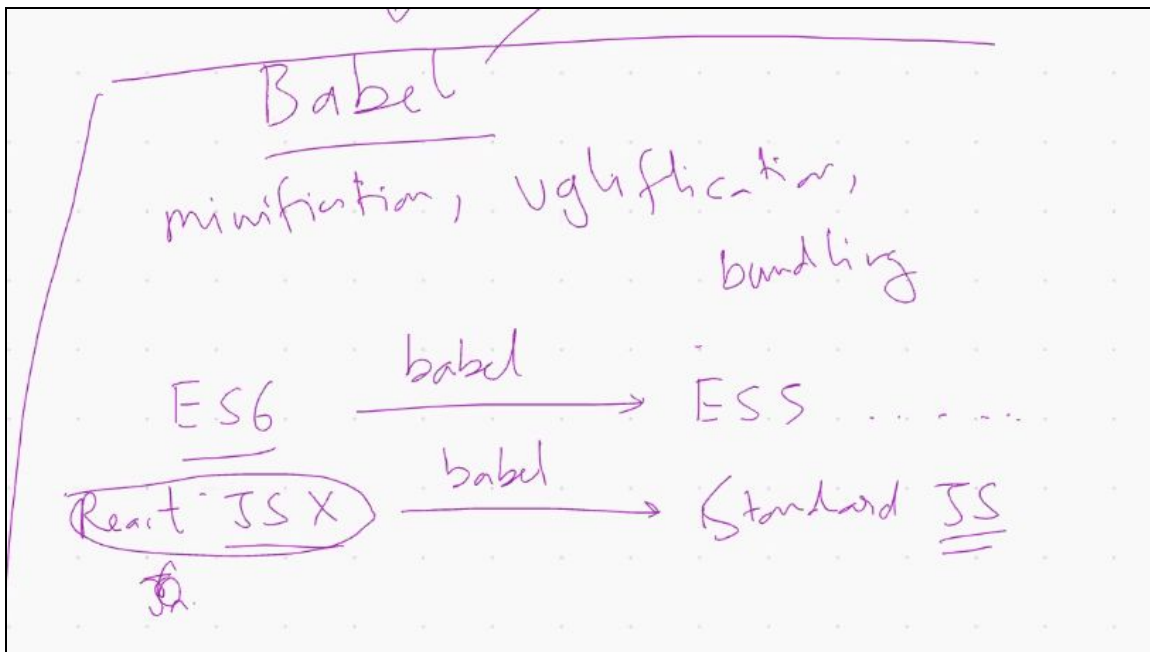 Babel
minification, Uglification,
bundling
ES6 babel → ES5 ......
React JSX babel → Standard JS